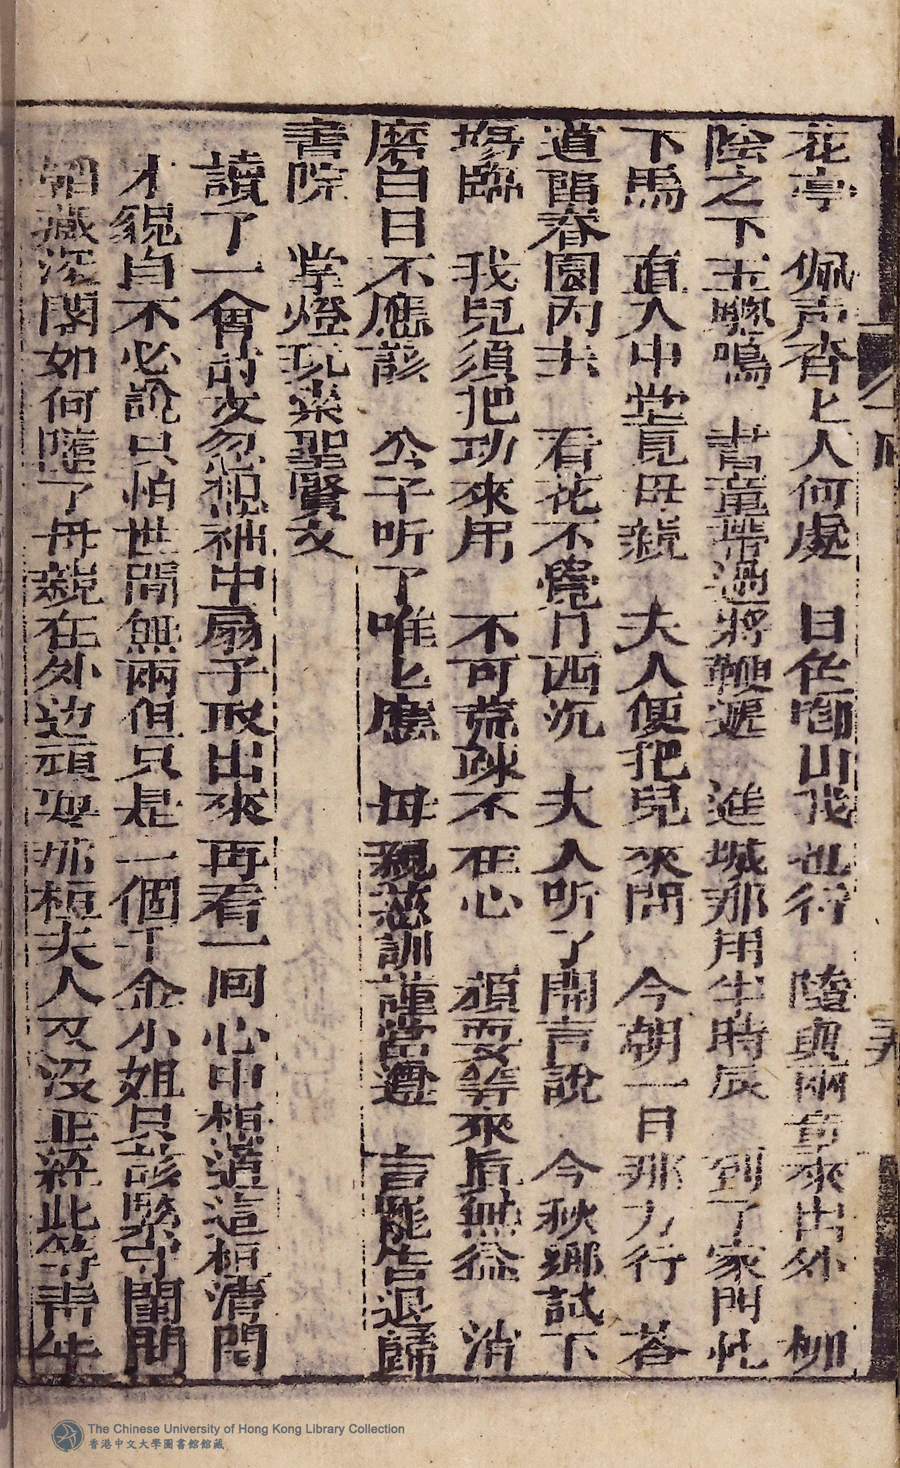 花亭　佩声脊匕人何處　日色啣山我也行　隨與兩童來出外　柳
陰之下玉驄鳴　書童帶過將鞭遞　進城那用半時辰　到了家門忙
下馬　直入中堂見母親　夫人便把兒來問　今朝一日那方行　荅
道留春園內去　看花不覺日西沉　夫人听了開言說　今秋鄉試下
塲臨　我兒須把功來用　不可荒疎不在心　頑耍等來眞無益　消
磨白日不應該　公子听了唯匕應　母親慈訓謹當遵　言罷告退歸
書院　掌燈玩索聖賢文
讀了一會詩文忽想袖中扇子取出來再看一回心中想道這桓清閨
才貌自不必說只怕世間無兩但只是一個千金小姐只該緊守閨閫
韜藏深閨如何隨了母親在外边頑耍那桓夫人又沒正經此等靑年
The Chinese University of Hong Kong Library Collection
香港中文大學圖書館館藏